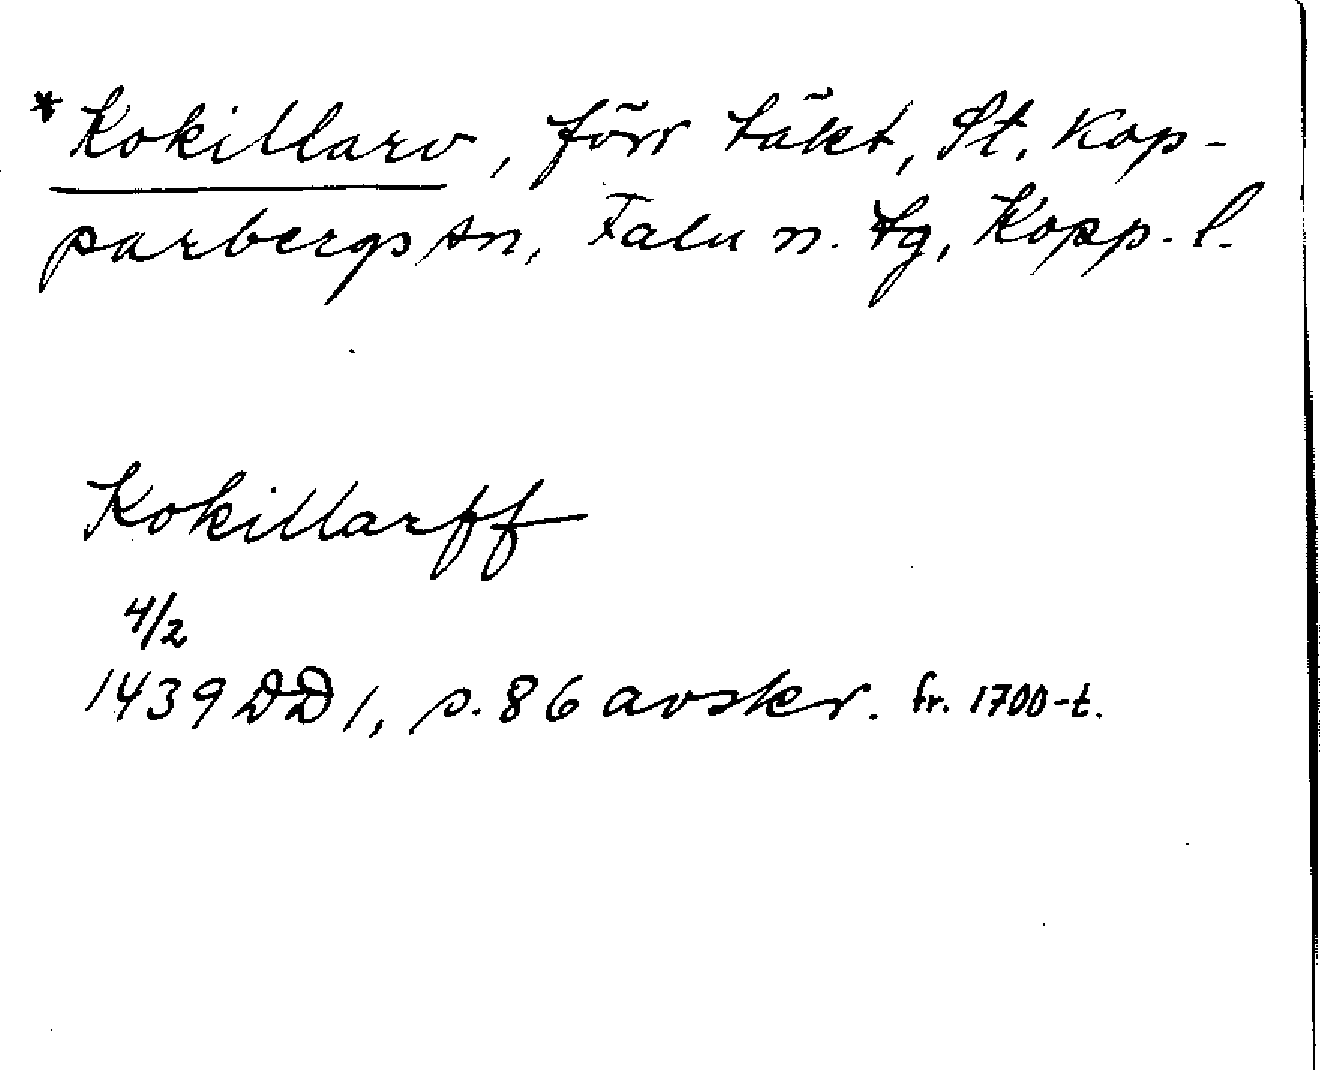 *Kokillarv, förr täkt, St. Kop-
parbergs sn, Falu n. tg, Kopp. l.
Kokillarff
4/2
1439 DD 1, s. 86 avskr. fr. 1700-t.